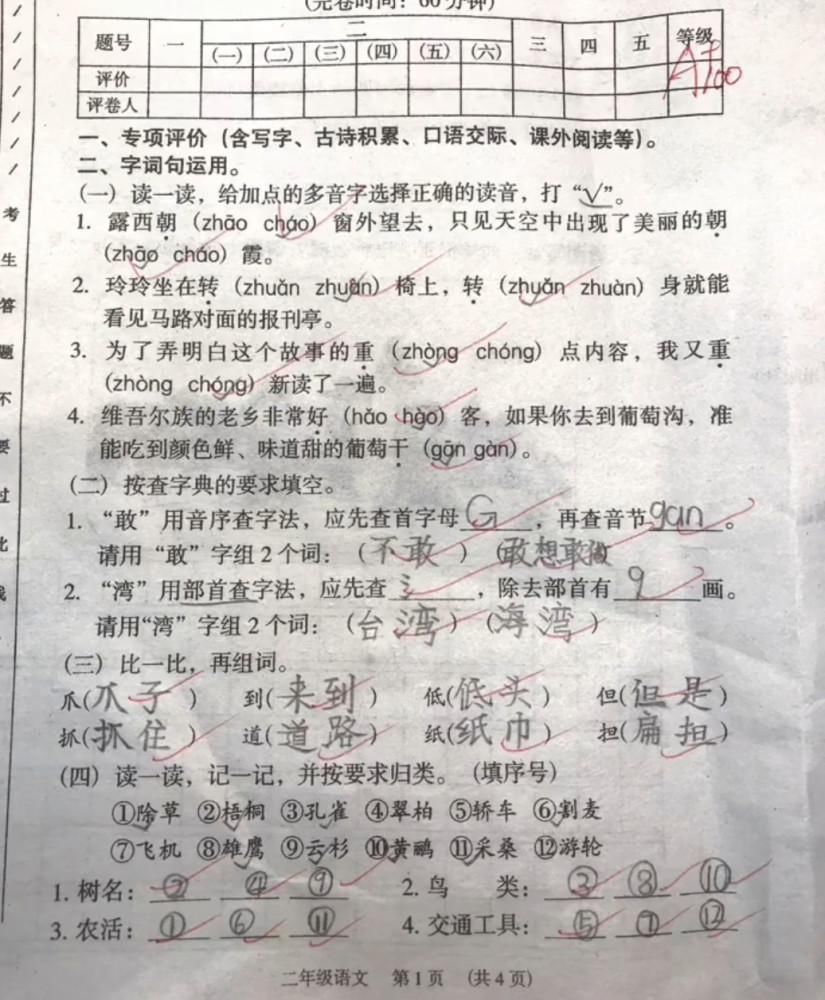 (完卷时间：60分钟)
题号 一 二 三 四 五 等级
(一) (二) (三) (四) (五) (六)
评价
A+
100
评卷人
一、专项评价（含写字、古诗积累、口语交际、课外阅读等）。
二、字词句运用。
(一) 读一读，给加点的多音字选择正确的读音，打“√”。
1. 露西朝（zhāo cháo）窗外望去，只见天空中出现了美丽的朝
(zhāo cháo) 霞。
2. 玲玲坐在转（zhuǎn zhuàn）椅上，转（zhuǎn zhuàn）身就能
看见马路对面的报刊亭。
3. 为了弄明白这个故事的重（zhòng chóng）点内容，我又重
(zhòng chóng) 新读了一遍。
4. 维吾尔族的老乡非常好（hǎo hào）客，如果你去到葡萄沟，准
能吃到颜色鲜、味道甜的葡萄干（gān gàn）。
(二) 按查字典的要求填空。
1. “敢”用音序查字法，应先查首字母 G ，再查音节 gan 。
请用“敢”字组2个词：（不敢）（敢想敢做
2. “湾”用部首查字法，应先查 氵 ，除去部首有 9 画。
请用“湾”字组2个词：（台湾）（海湾）
(三) 比一比，再组词。
爪(爪子) 到(来到) 低(低头) 但(但是)
抓(抓住) 道(道路) 纸(纸巾) 担(扁担)
(四) 读一读，记一记，并按要求归类。（填序号）
①除草 ②梧桐 ③孔雀 ④翠柏 ⑤轿车 ⑥割麦
⑦飞机 ⑧雄鹰 ⑨云杉 ⑩黄鹂 ⑪采桑 ⑫游轮
1. 树名： ② ④ ⑨ 2. 鸟 类： ③ ⑧ ⑩
3. 农活： ① ⑥ ⑪ 4. 交通工具： ⑤ ⑦ ⑫
二年级语文 第1页 （共4页）
考
生
答
题
不
要
过
此
线